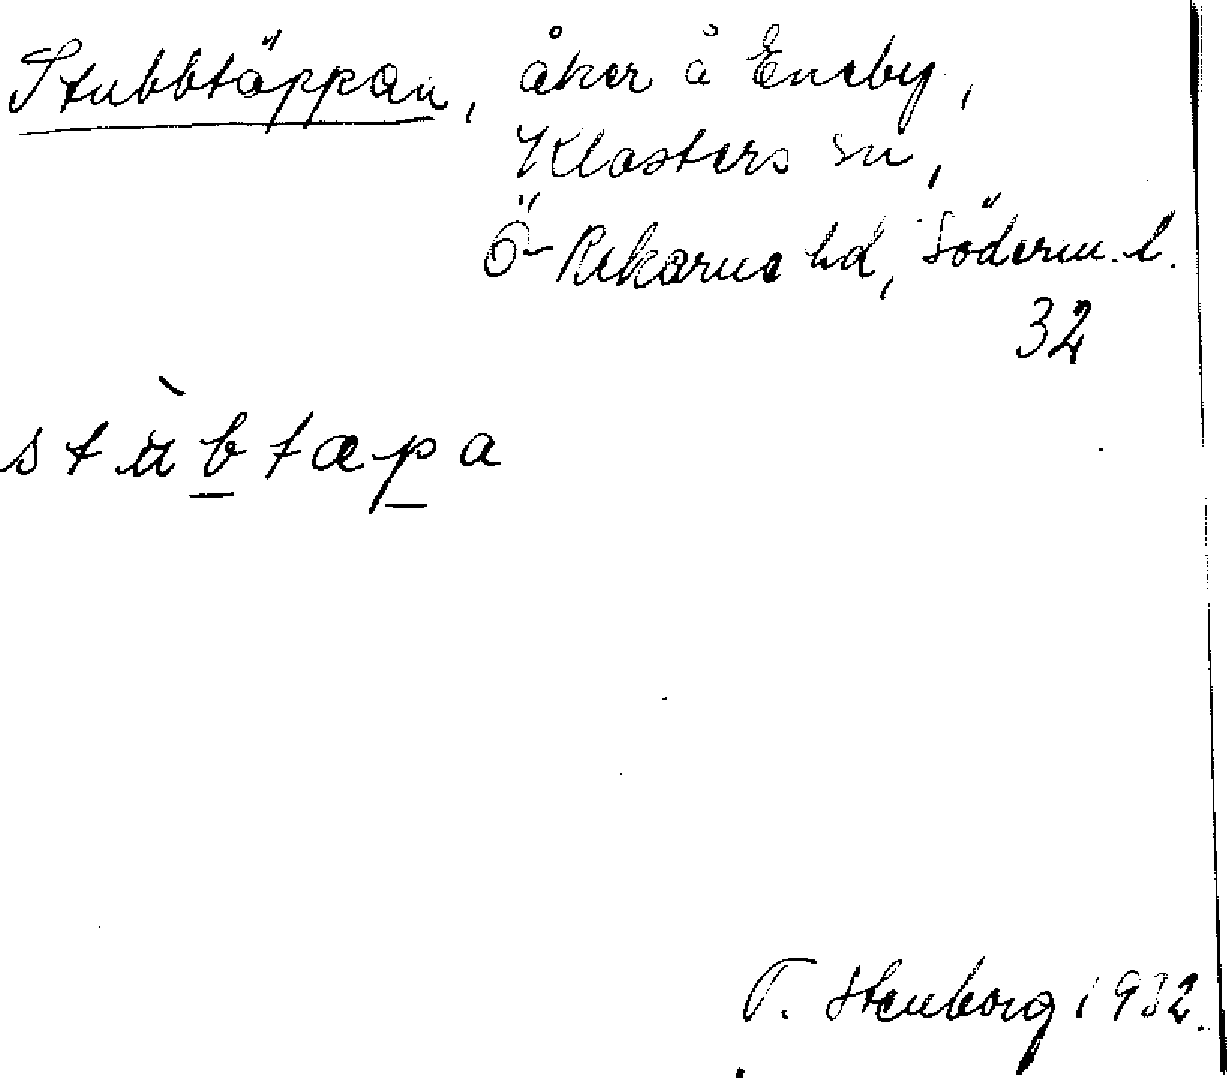 Stubbtäppan, åker å Eneby,
Klosters sn,
Ö-Rekarne hd, Söderm. l.
32
stùbtæpa
T. Stenborg 1932.